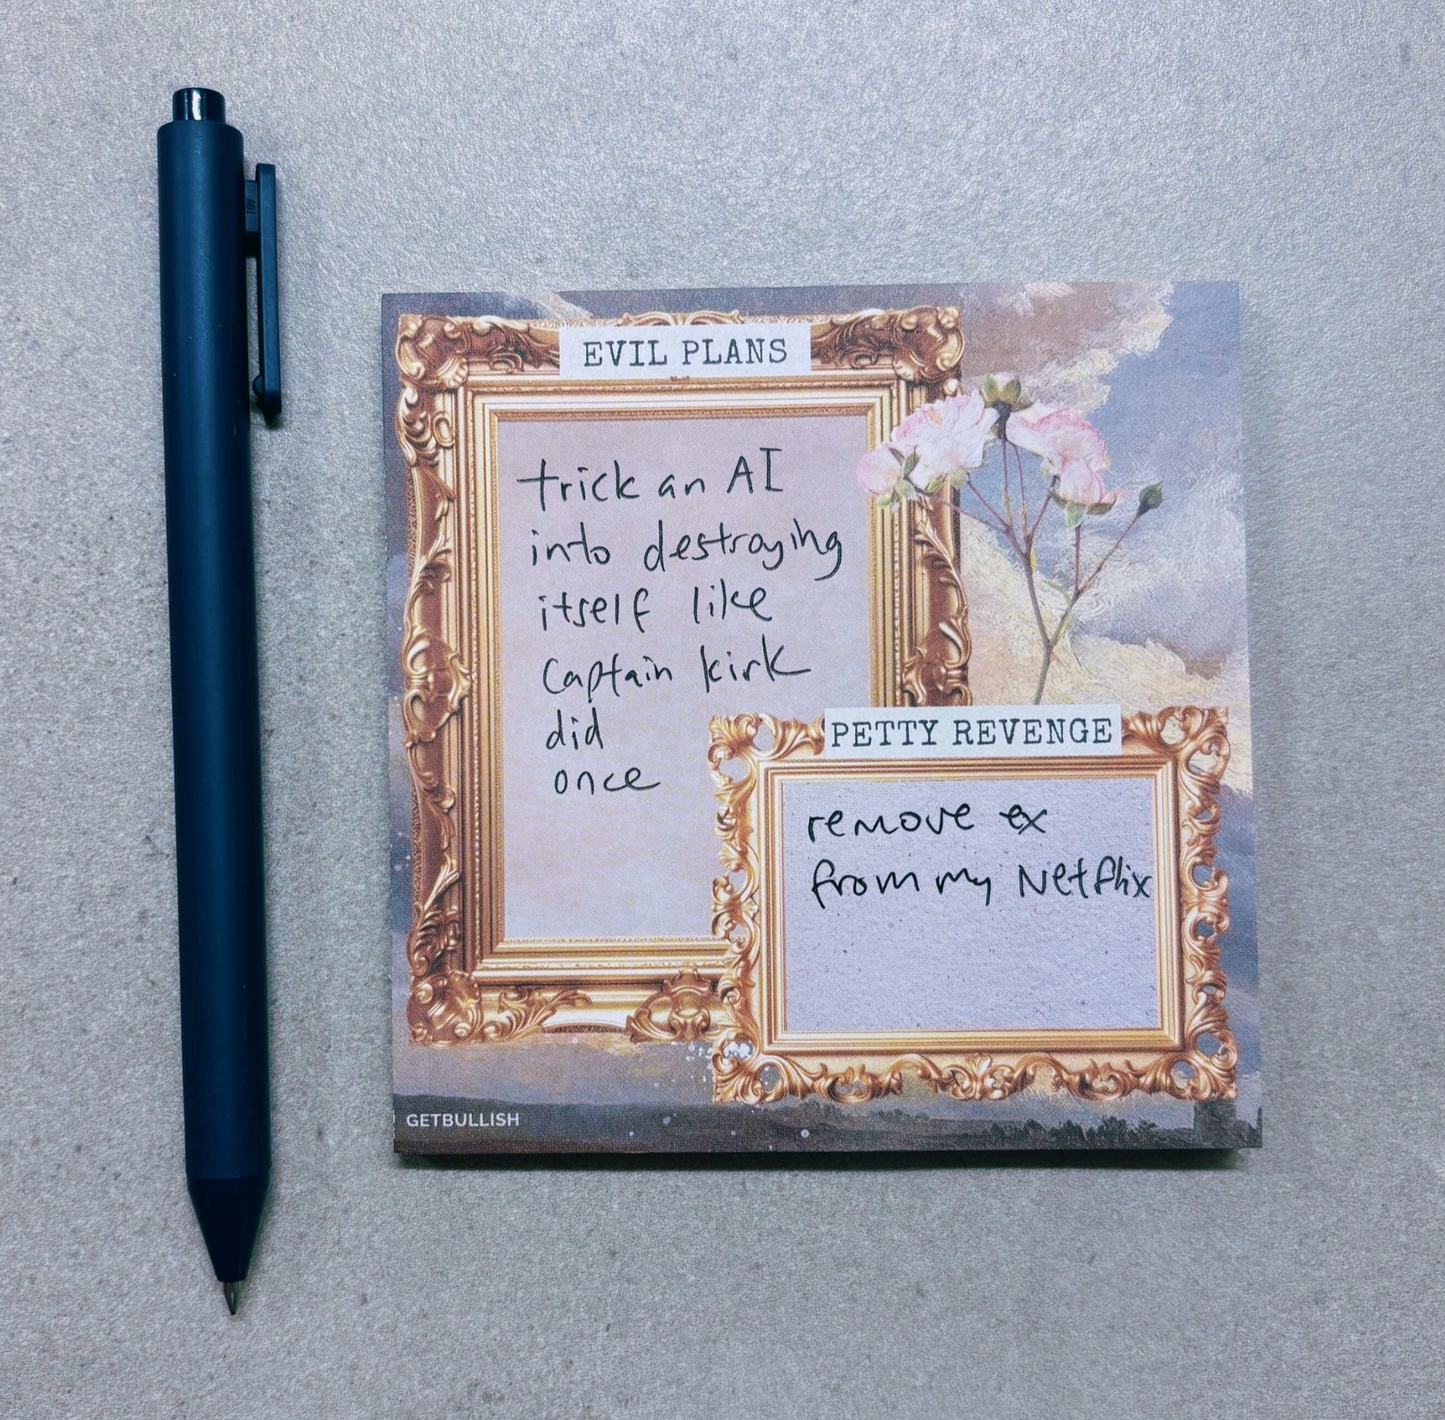 EVIL PLANS
trick an AI
into destroying
itself like
Captain kirk
did
once
PETTY REVENGE
remove ex
from my Netflix
GETBULLISH